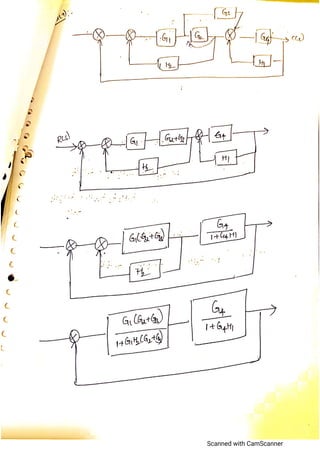 R(s)
G3
G1
G2
G4
C(s)
H2
H1
R(s)
G1
G2+G3
G4
H2
H1
G1(G2+G3)
G4
1+G4H1
H2
G1(G2+G3)
1+G1H2(G2+G3)
G4
1+G4H1
Scanned with CamScanner